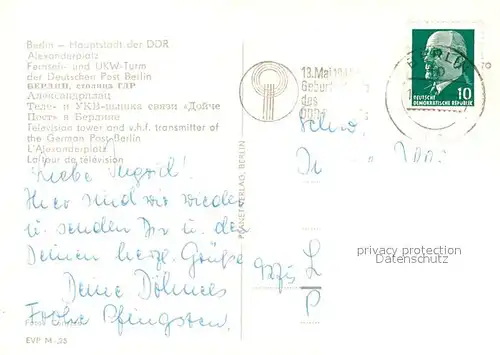 Berlin – Hauptstadt der DDR
Alexanderplatz
Fernseh- und UKW-Turm
der Deutschen Post Berlin
БЕРЛИН, столица ГДР
Александрплац
Теле- и УКВ-вышка связи «Дойче
Пост» в Берлине
Television tower and v.h.f. transmitter of
the German Post Berlin
L'Alexanderplatz
La tour de télévision
Liebe Ingrid!
Hier sind wir wieder
u. senden Dir u. den
Deinen herzl. Grüße
Deine Döhners
Frohe Pfingsten.
EVP M -,25
PLANET-VERLAG, BERLIN
13. Mai
Geburt
des
BERLIN
10
DEUTSCHE
DEMOKRATISCHE REPUBLIK
privacy protection
Datenschutz
L
P